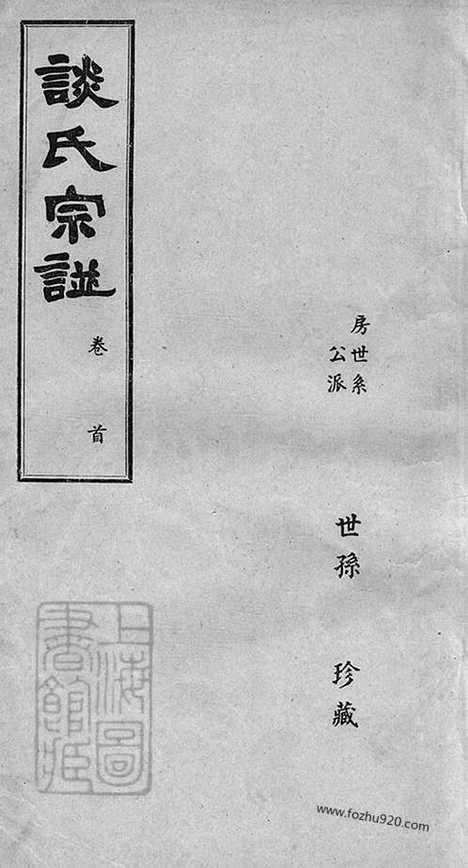 房世系
公派
世孫
珍藏
談氏宗譜
卷首
上海圖書館藏
www.fozhu920.com